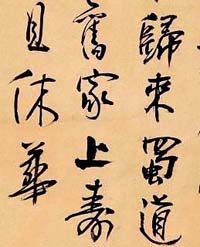 歸来蜀道
舊家上壽
且休華